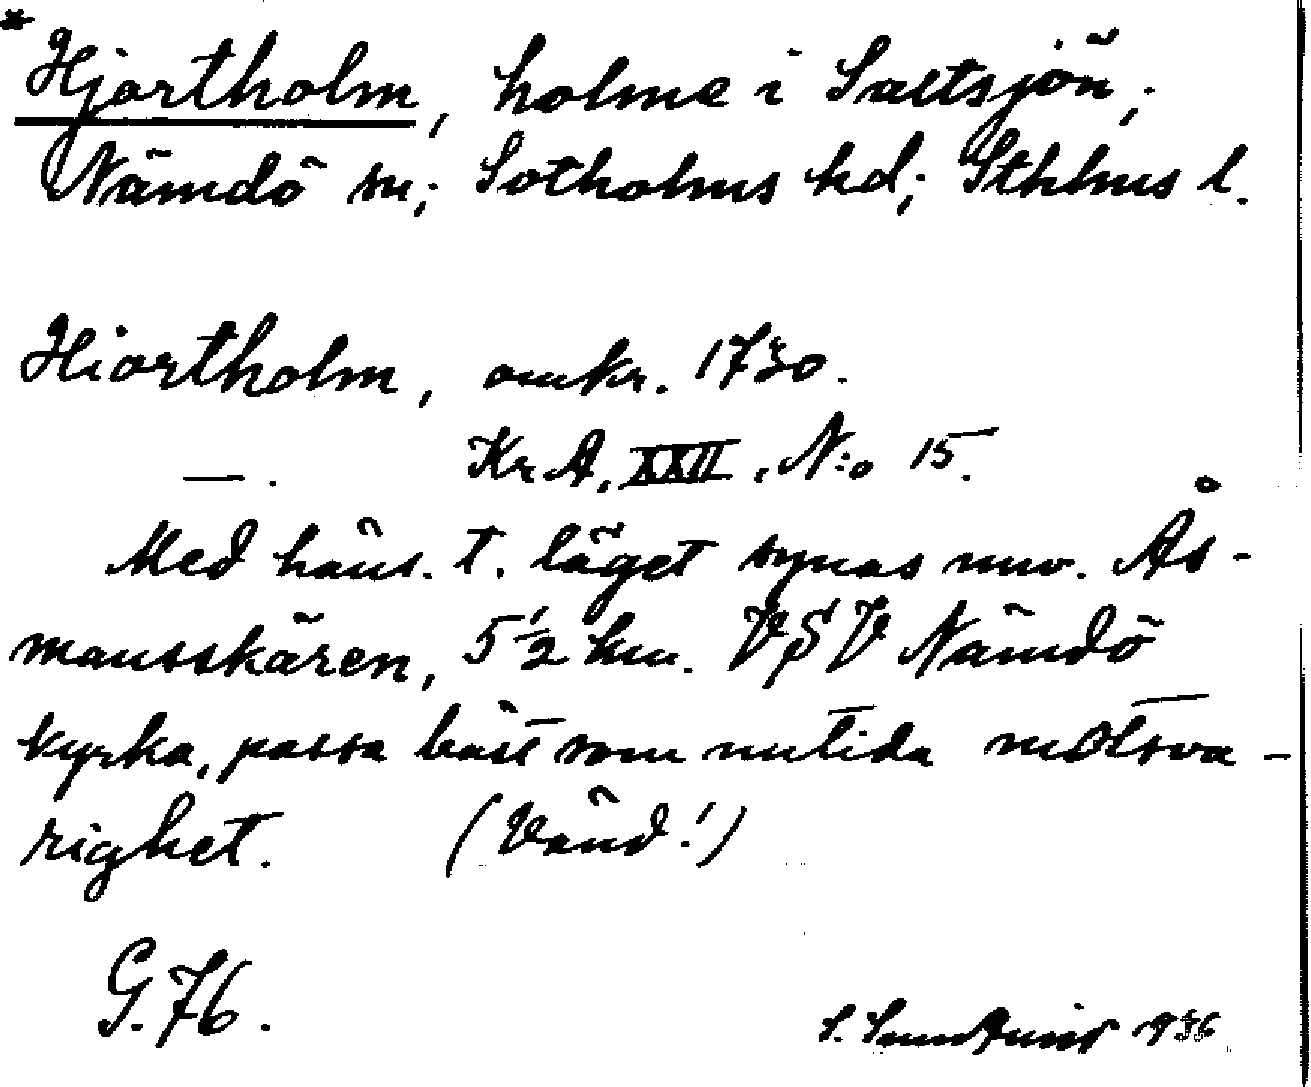 * Hjortholm, holme i Saltsjön;
Nämdö sn; Sotholms hd; Sthlms l.
Hiortholm, omkr. 1730.
— . Kr A, XXII, N:o 15.
Med häns. t. läget synas nuv. Ås-
mansskären, 5 1/2 km. VSV Nämdö
kyrka, passa bäst som nutida motsva-
righet. (Vänd!)
G. 76.
S. 1936